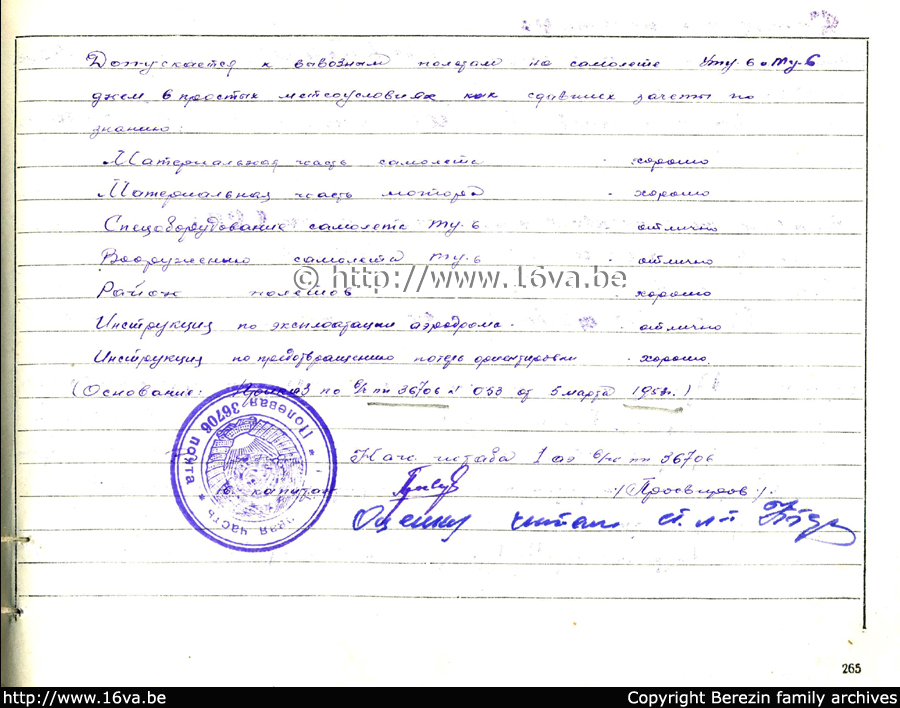 Допускается к вывозным полетам на самолете Уту-6 и Ту-6
днем в простых метеоусловиях как сдавший зачеты по
знанию:
Материальная часть самолета - хорошо
Материальная часть мотора - хорошо
Спецоборудование самолета Ту-6 - отлично
Вооружению самолета Ту-6 - отлично
© http://www.16va.be
Район полетов - хорошо
Инструкция по эксплоатации аэродрома - отлично
Инструкция по предотвращению потери ориентировки - хорошо
(Основание: Приказ по в/ч пп 36706 № 053 от 5 марта 195 г.)
Полевая почта 36706
Нач. штаба 1 аэ в/ч пп 36706
капитан /Просвиров/
Оценки читал ст. л-т
265
http://www.16va.be
Copyright Berezin family archives